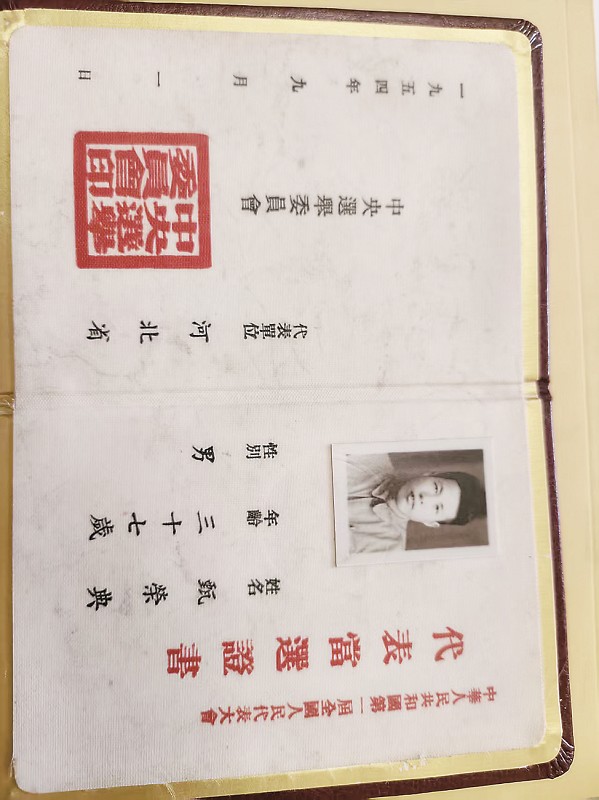 中華人民共和國第一屆全國人民代表大會
代表當選證書
姓名 甄榮典
年齡 三十七歲
性別 男
代表單位 河北省
中央選舉委員會
中央選舉
委員會印
一九五四年九月一日